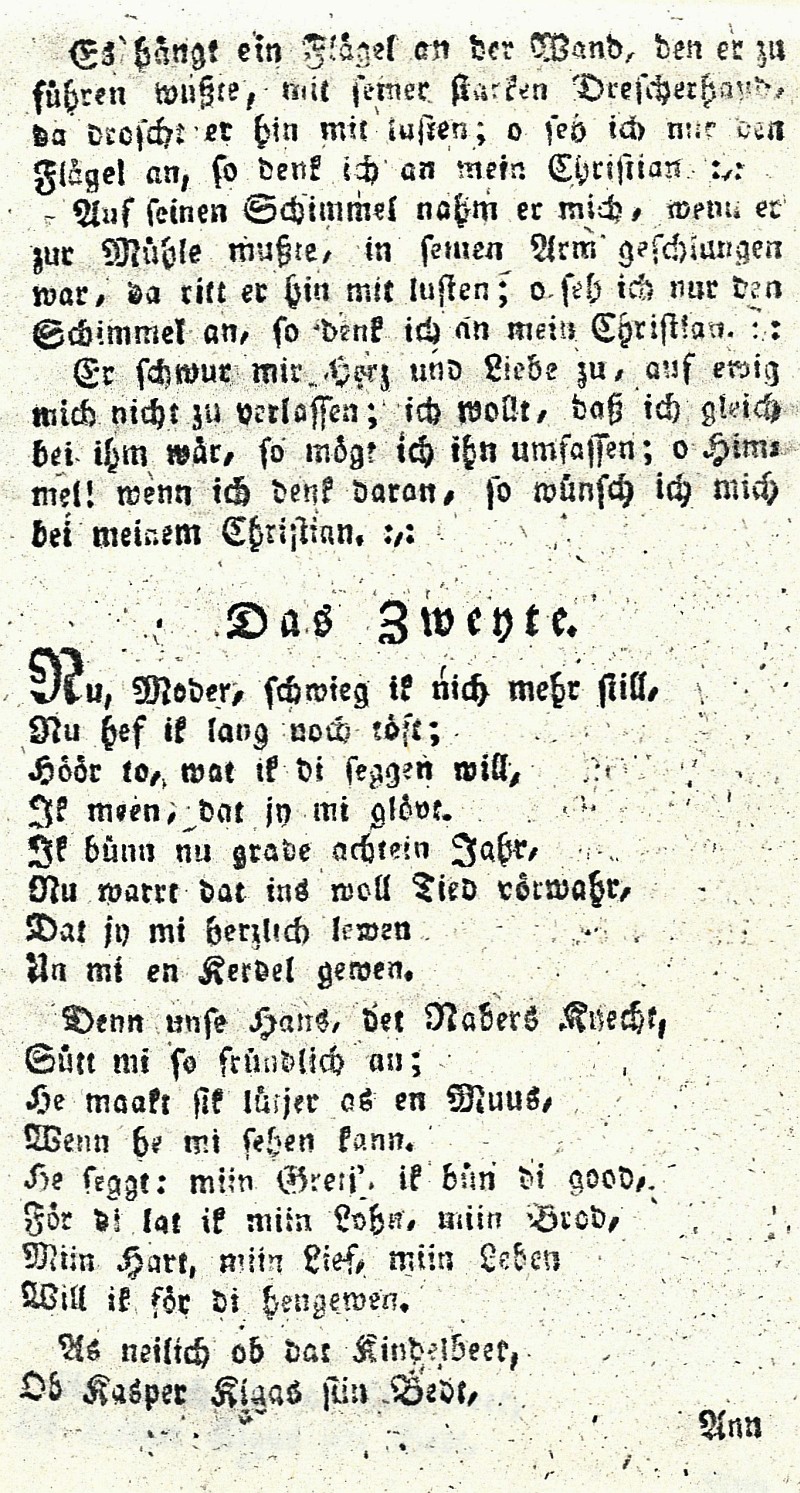 Es hängt ein Flägel an der Wand, den er zu
führen wußte, mit seiner starken Drescherhand,
da droscht er hin mit lusten; o seh ich nur den
Flägel an, so denk ich an mein Christian. :,:
Auf seinen Schimmel nahm er mich, wenn er
zur Mühle mußte, in seinen Arm geschlungen
war, da ritt er hin mit lusten; o seh ich nur den
Schimmel an, so denk ich an mein Christian. : :
Er schwur mir Herz und Liebe zu, auf ewig
mich nicht zu verlassen; ich wollt, daß ich gleich
bei ihm wär, so mögt ich ihn umfassen; o Him-
mel! wenn ich denk daran, so wünsch ich mich
bei meinem Christian. :,:
Das Zweyte.
Nu, Moder, schwieg ik nich mehr still,
Nu hef ik lang noch töft;
Höör to, wat ik di seggen will,
Ik meen, dat jy mi glövt.
Ik bünn nu grade achtein Jahr,
Nu warrt dat ins woll Tied vörwahr,
Dat jy mi herzlich lewen
Un mi en Kerdel gewen.
Denn unse Hans, det Nabers Knecht,
Sütt mi so fründlich an;
He maakt sik lütjer as en Muus,
Wenn he mi sehen kann.
He seggt: miin Grets', ik bün di good,
För di lat ik miin Lohn, miin Brod,
Miin Hart, miin Lief, miin Leben
Will ik för di hengewen.
As neilich ob dat Kindelbeet,
Ob Kasper Klaas siin Bedt,
Ann